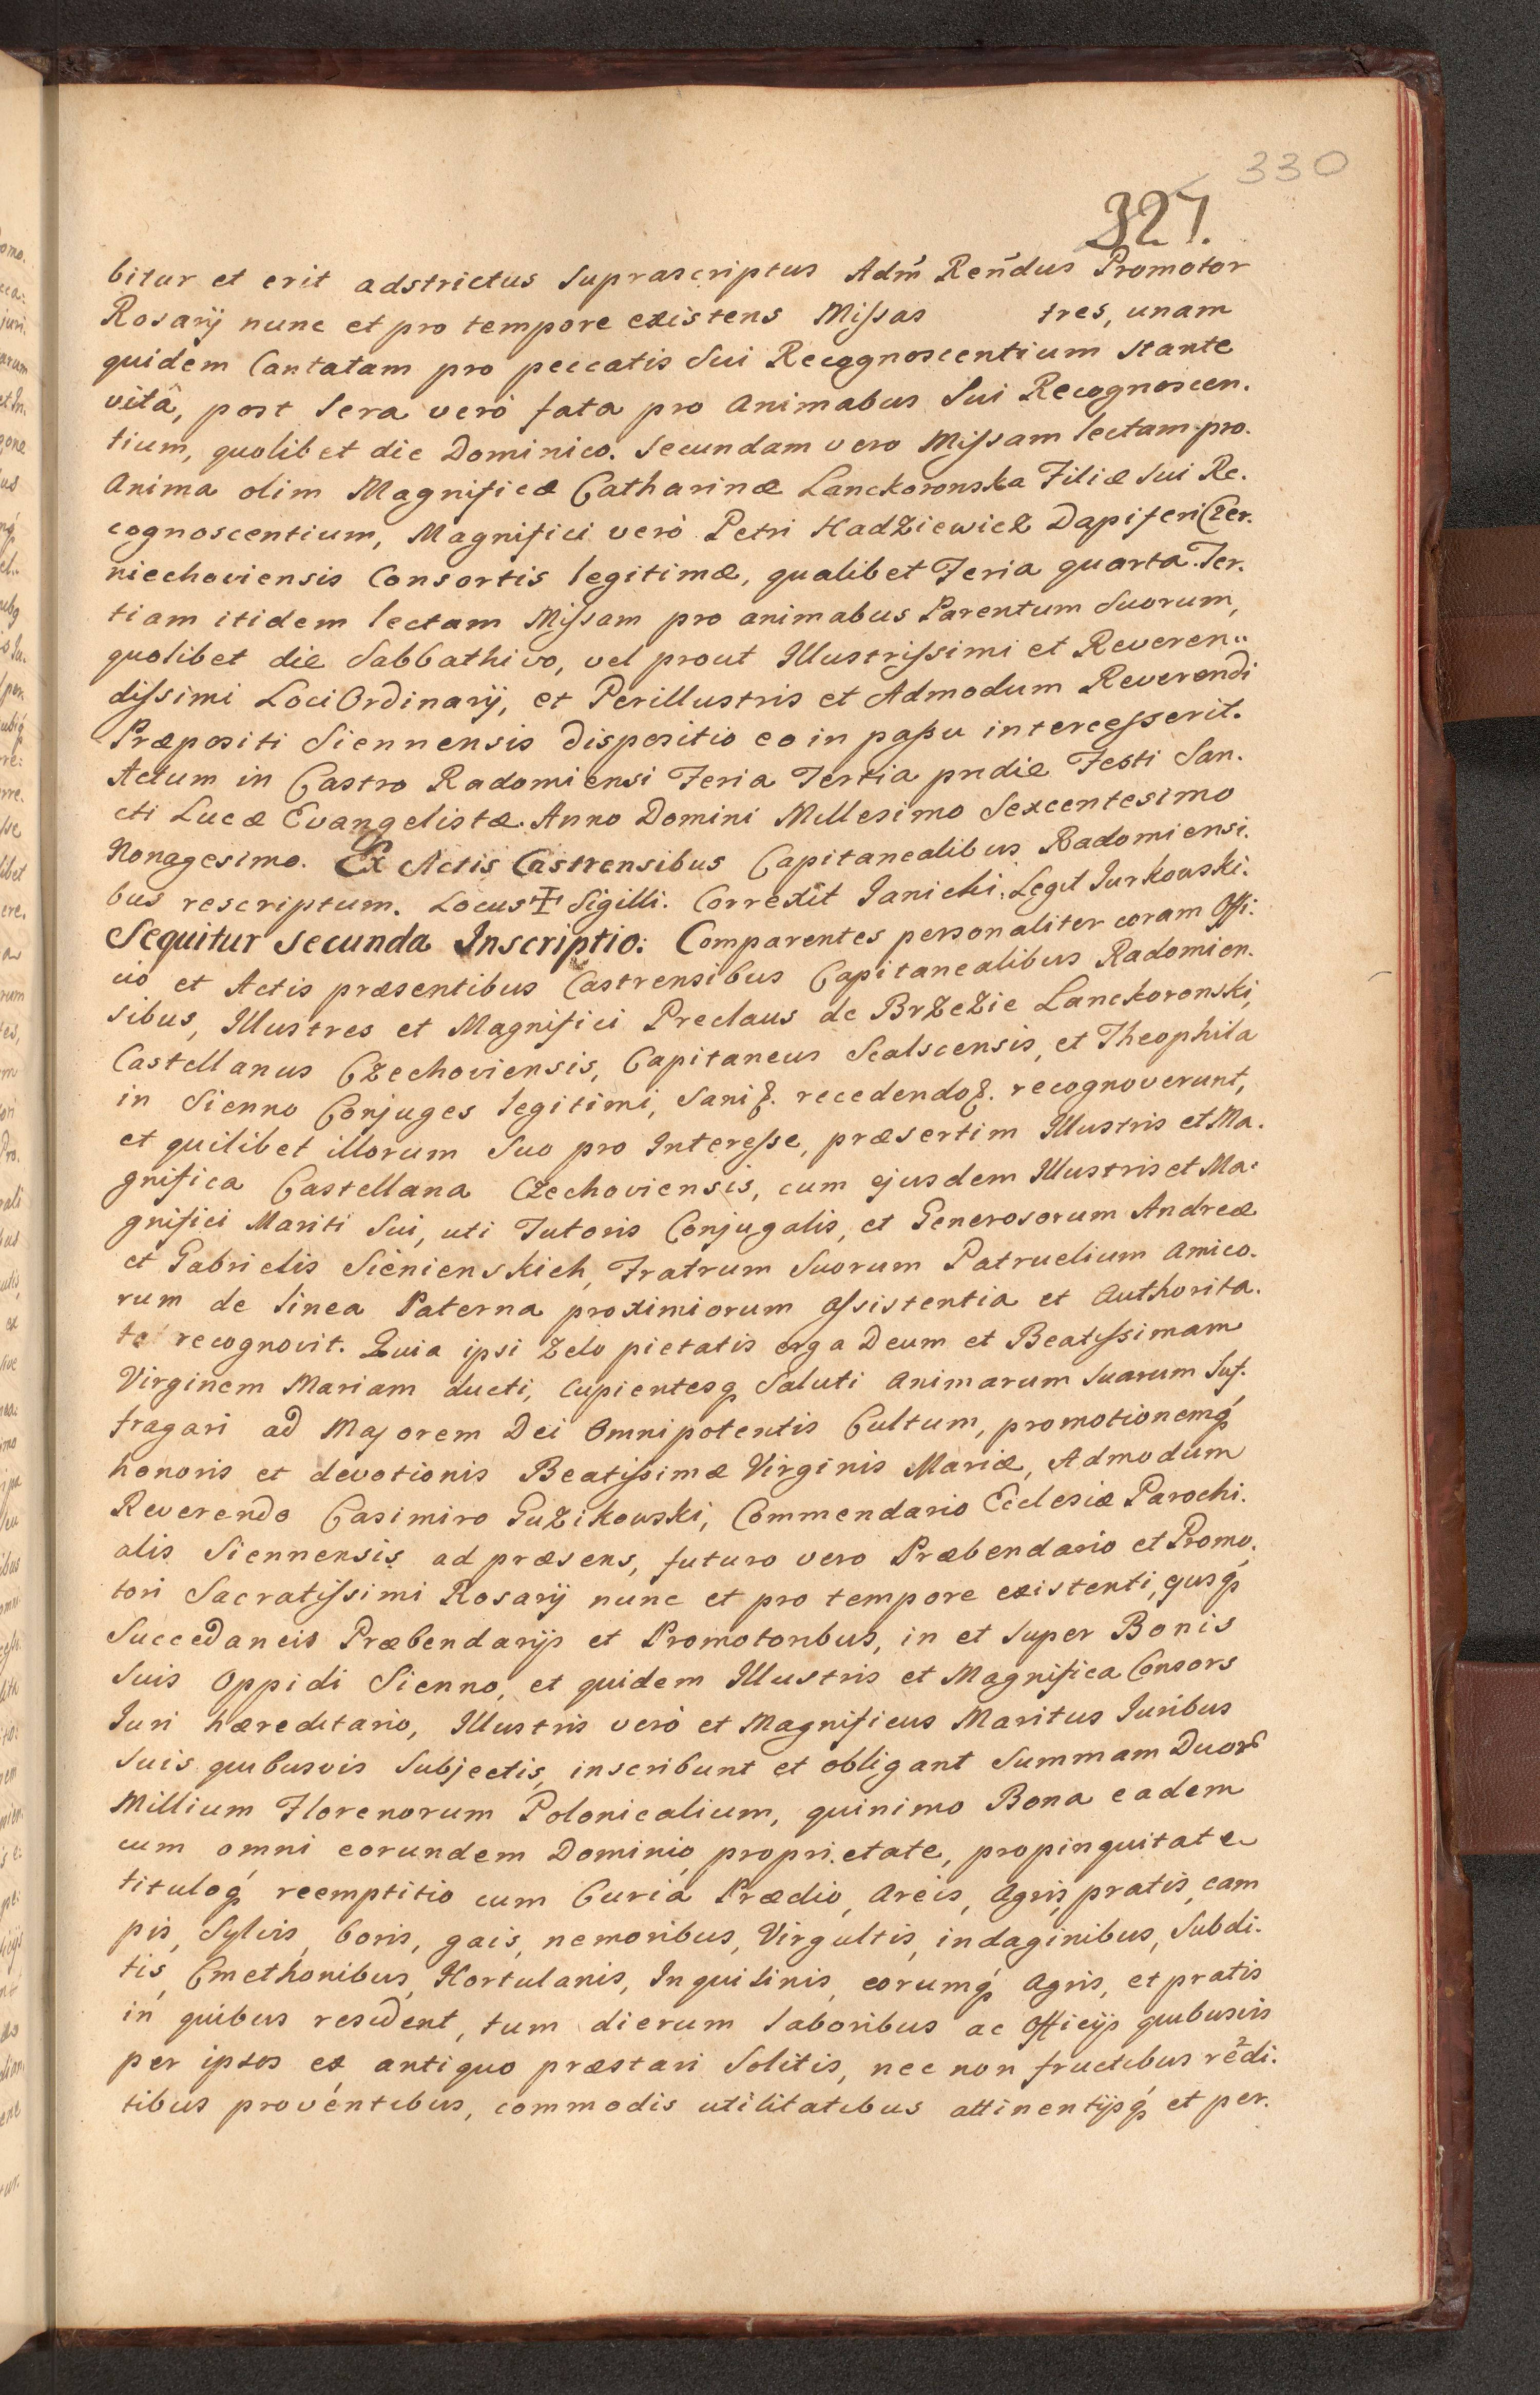 330
327.
bitur et erit adstrictus Suprascriptus Adm̃ Ren̄dus Promotor
Rosarÿ nunc et pro tempore existens Missas tres, unam
quidem Cantatam pro peccatis Sui Recognoscentium stante
vitâ, post Sera verò fata pro Animabus Sui Recognoscen.
tium, quolibet die Dominico. Secundam vero Missam lectam pro.
Anima olim Magnificæ Catharinæ Lanckoronska Filiæ Sui Re.
cognoscentium, Magnifici verò Petri Hadziewicz Dapiferi Czer.
niechoviensis Consortis legitimæ, qualibet Feria quarta. Ter.
tiam itidem lectam Missam pro animabus Parentum Suorum,
quolibet die Sabbathivo, vel prout Illustrissimi et Reveren..
dissimi Loci Ordinarÿ, et Perillustris et Admodum Reverendi
Præpositi Siennensis dispositio eo in passu intercesserit.
Actum in Castro Radomiensi Feria Tertia pridie Festi San.
cti Lucæ Evangelistæ. Anno Domini Millesimo Sexcentesimo
Nonagesimo. Ex Actis Castrensibus Capitanealibus Radomiensi.
bus rescriptum. Locus ✝ Sigilli. Correxit Janichi. Legit Jurkowski.
Sequitur secunda Inscriptio: Comparentes personaliter coram Offi.
cio et Actis præsentibus Castrensibus Capitanealibus Radomien.
sibus, Illustres et Magnifici Preclaus de Brzezie Lanckoronski,
Castellanus Czechoviensis, Capitaneus Scalscensis, et Theophila
in Sienno Conjuges legitimi, Sani &. recedendo &. recognoverunt,
et quilibet illorum Suo pro Interesse, præsertim Illustris et Ma.
gnifica Castellana Czechoviensis, cum ejusdem Illustris et Ma.
gnifici Mariti Sui, uti Tutoris Conjugalis, et Generosorum Andreæ
et Gabrielis Sienienskich, Fratrum Suorum Patruelium Amico.
rum de linea Paterna proximiorum assistentia et Authorita.
te recognovit. Quia ipsi Zelo pietatis erga Deum et Beatissimam
Virginem Mariam ducti, Cupientesq́ Saluti Animarum Suarum Suf.
fragari ad Majorem Dei Omnipotentis Cultum, promotionemq́
honoris et devotionis Beatissimæ Virginis Mariæ, Admodum
Reverendo Casimiro Guzikowski, Commendario Ecclesiæ Parochi.
alis Siennensis ad præsens, futuro vero Præbendario et Promo.
tori Sacratissimi Rosarÿ nunc et pro tempore existenti, ejusq́
Succedaneis Præbendarÿs et Promotoribus, in et Super Bonis
Suis Oppidi Sienno, et quidem Illustris et Magnifica Consors
Juri hæreditario, Illustris verò et Magnificus Maritus Juribus
Suis quibusvis Subjectis, inscribunt et obligant Summam Duorũ
Millium Florenorum Polonicalium, quinimo Bona eadem
cum omni eorundem Dominio, proprietate, propinquitate
tituloq́ reemptitio cum Curia Prædio, Areis, Agris, pratis, cam
pis, Sylvis, boris, gais, nemoribus, Virgultis, indaginibus, Subdi.
tis, Cmethonibus, Hortulanis, Inquilinis, eorumq́ Agris, et pratis
in quibus resident, tum dierum laboribus ac Officÿs quibusvis
per ipsos ex antiquo præstari Solitis, nec non fructibus redi.
tibus provéntibus, commodis utilitatibus attinentÿsq́ et per.